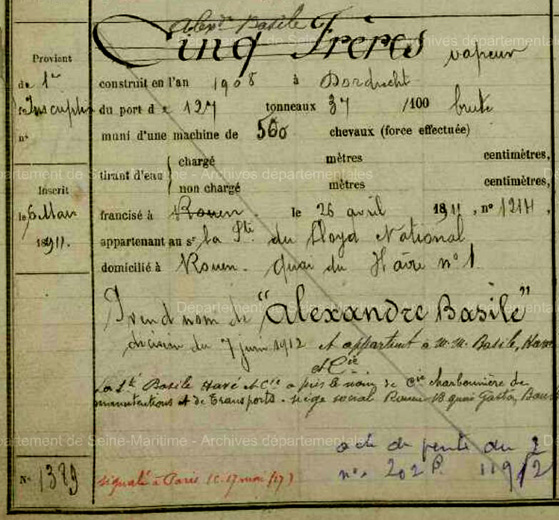 Alexdre Basile
Cinq Frères vapeur
Provient
de 1re
Inscription
n°
construit en l'an 1908 à Dordrecht
du port de 127 tonneaux 37 /100 brute
muni d'une machine de 560 chevaux (force effectuée)
tirant d'eau { chargé mètres centimètres,
non chargé mètres centimètres,
Inscrit
le 6 Mai
1911.
francisé à Rouen. le 26 avril 1911, n° 1244,
appartenant au sr la Sté du Lloyd National
domicilié à Rouen. quai du Hâvre n° 1
Prend nom de "Alexandre Basile"
décision du 7 juin 1912 et appartient à M.M. Basile, Havé
et Cie
La Sté Basile Havé et Cie a pris le nom de Cie charbonnière de
manutentions et de transports. siège social Rouen 18 quai Gaston Boulet
acte de vente du 2
n° 202 P. 11912
N° 1389
signalé à Paris (C. 17 mai /17)
Département de Seine-Maritime - Archives départementales